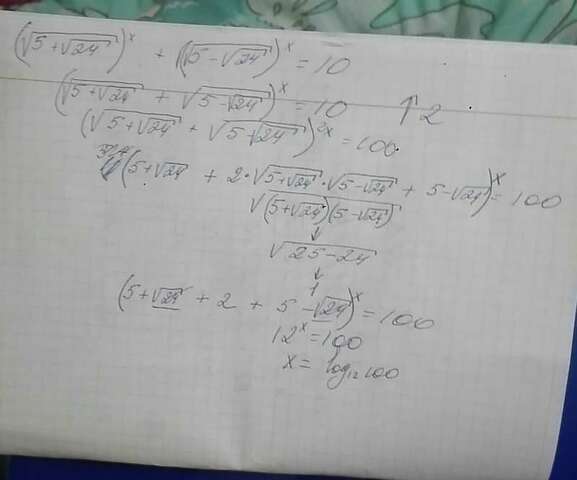 (√(5+√24))^x + (√(5-√24))^x = 10
(√(5+√24) + √(5-√24))^x = 10 ↑2
(√(5+√24) + √(5-√24))^2x = 100
(5+√24 + 2·√(5+√24)·√(5-√24) + 5-√24)^x = 100
√((5+√24)(5-√24))
↓
√(25-24)
↓
1
(5+√24 + 2 + 5 -√24)^x = 100
12^x = 100
x = log₁₂100